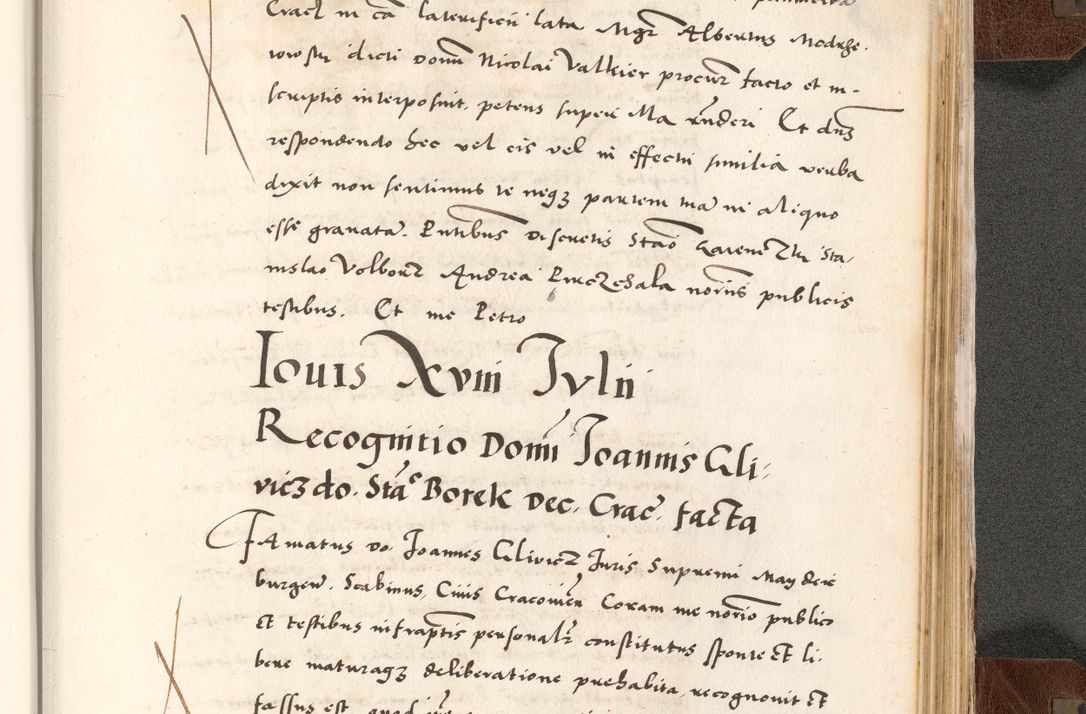 Cracē in cā laterificii lata Mgr Albertus Modrze-
wosky dicti domi Nicolai Valkier procur facto et in-
scriptis interposuit, petens superi Ma rnderi Et dns
respondendo hec vel eis vel in effectu similia verba
dixit non sentimus te neqȝ partem tuā in aliquo
esse gravatā. Pntibus discretis Stao Sta-
nislao Volborz Andrea noriis publicis
testibus. Et me Petro
Iouis Xviii Iulii
Recognitio Domi Ioannis Gli-
vicz do. Stae Borek Dec. Crac. facta
Famatus do Ioannes Glivicz Iuris Supremi Mayde-
burgen. Scabinus, Civis Cracovien Coram me norio publico
Et testibus infraptis personalr constitutus sponte Et li-
bere maturaqȝ deliberatione prehabita recognovit Et
fassus est quod